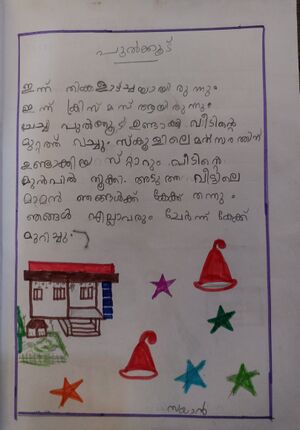 പുൽക്കൂട്
ഇന്ന് തിങ്കളാഴ്ചയായിരുന്നു.
ഇന്ന് ക്രിസ്മസ് ആയിരുന്നു.
ചേച്ചി പുൽക്കൂട് ഉണ്ടാക്കി വീടിന്റെ
മുറ്റത്ത് വച്ചു. സ്കൂളിലെ മത്സരത്തിന്
ഉണ്ടാക്കിയ സ്റ്റാറും വീടിന്റെ
മുൻപിൽ തൂക്കി. അടുത്ത വീട്ടിലെ
മാമൻ ഞങ്ങൾക്ക് കേക്ക് തന്നു.
ഞങ്ങൾ എല്ലാവരും ചേർന്ന് കേക്ക്
മുറിച്ചു.